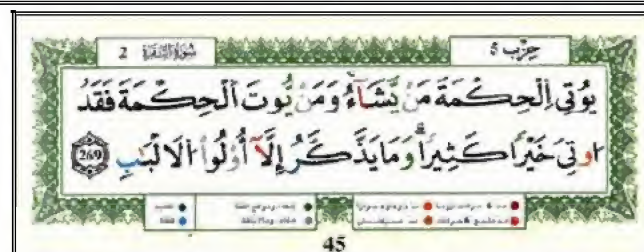 حزب 5
سورة البقرة 2
يُوتِى اِ۬لْحِكْمَةَ مَنْ يَّشَآءُۖ وَمَنْ يُّوتَ اَ۬لْحِكْمَةَ فَقَدُ
ا۟وتِىَ خَيْراٗ كَثِيراٗۖ وَمَا يَذَّكَّرُ إِلَّآ أُوْلُواْ اُ۬لَالْبَٰبِ 269
45